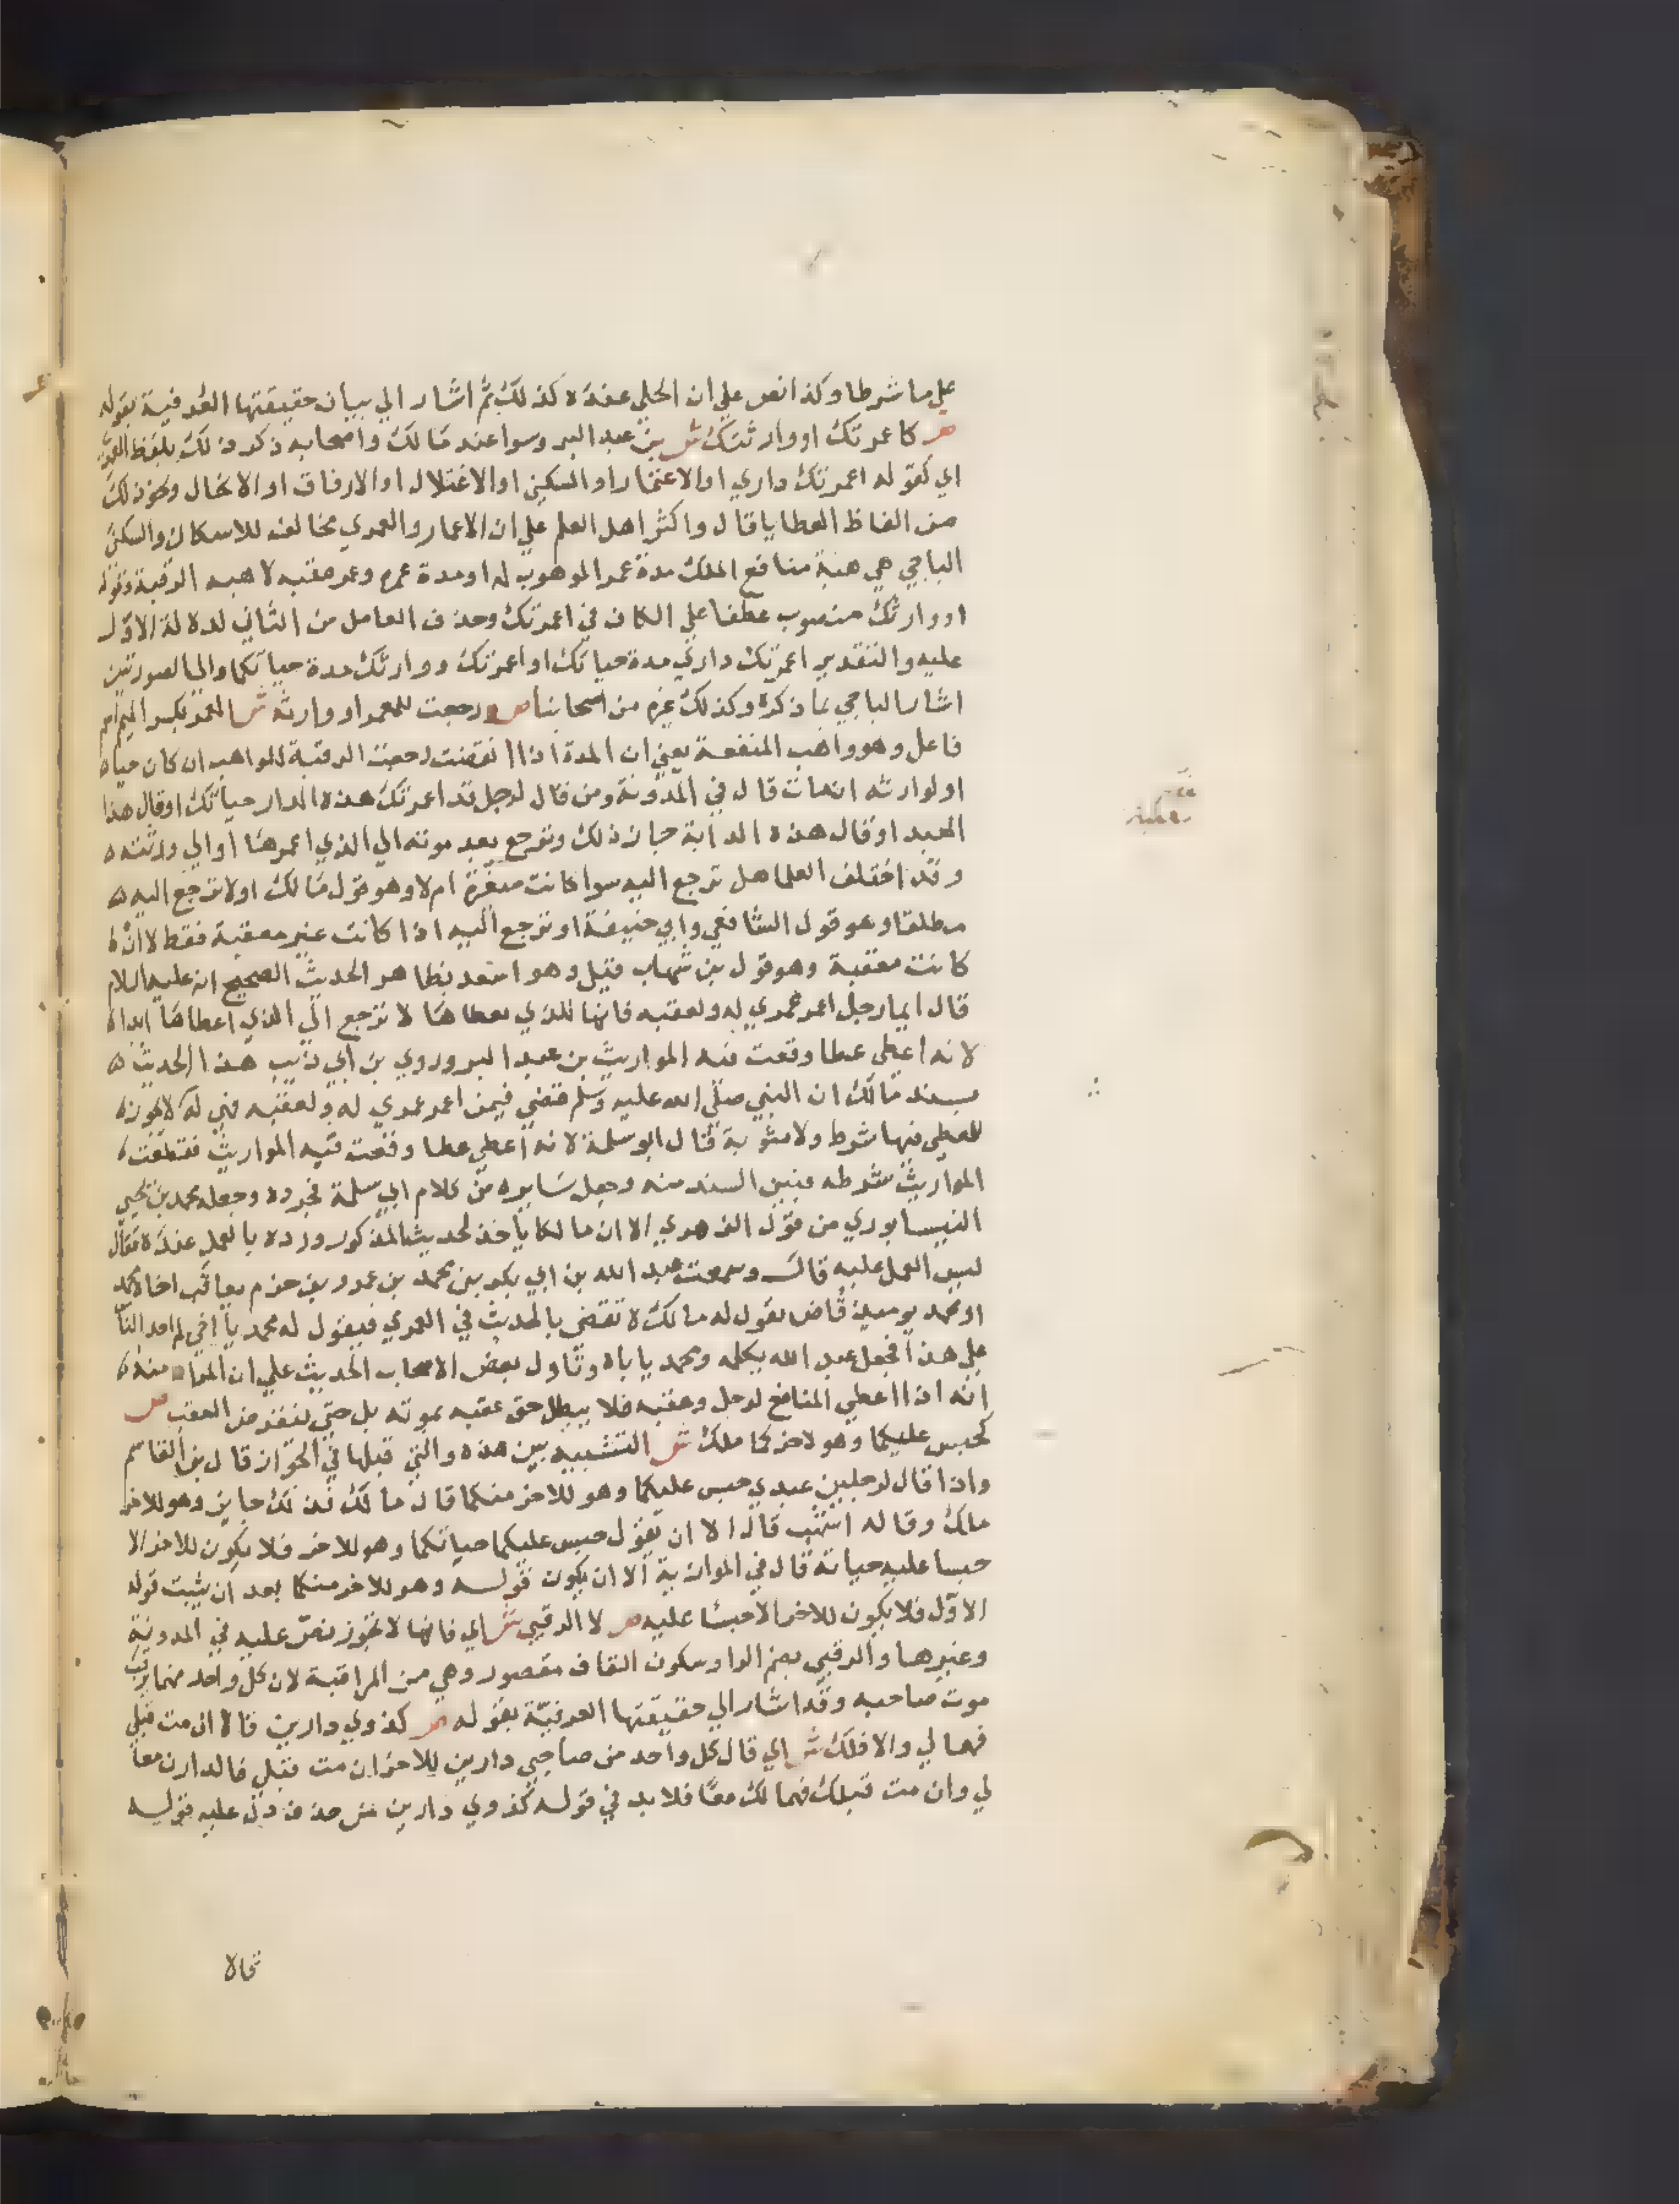 على ما شرطا وكذا نص علي ان الحلي عنده كذلك ثم اشار الي بيان حقيقتها العرفية بقوله
ص كاعمرتك او وارثك ش بن عبد البر وسوا عند مالك واصحابه ذكر ذلك بلفظ العمري
اي كقوله اعمرتك داري او الاعتمار او السكني او الاغتلال او الارفاق او الانحال ونحو ذلك
من الفاظ العطايا قال واكثر اهل العلم علي ان الاعمار والعمري مخالف للاسكان والسكني
الباجي هي هبة منافع الملك مدة عمر الموهوب له او مدة عمره وعمر عقبه لا هبه الرقبة وقوله
او وارثك منصوب عطفا علي الكاف في اعمرتك وحذف العامل من الثاني لدلالة الاول
عليه والتقدير اعمرتك داري مدة حياتك او اعمرتك ووارثك مدة حياتكما والي الصورتين
اشار الباجي بما ذكره وكذلك غيره من اصحابنا ص ورجعت للمعمر او وارثه ش المعمر بكسر الميم اسم
فاعل وهو واهب المنفعة يعني ان المدة اذا انقضت رجعت الرقبة للواهب ان كان حيا
او لوارثه ان مات قال في المدونة ومن قال لرجل قد اعمرتك هذه الدار حياتك او قال هذا
العبد او قال هذه الدابة جاز ذلك وترجع بعد موته الي الذي اعمرها او الي ورثته
وقد اختلف العلما هل ترجع اليه سوا كانت معقبة ام لا وهو قول مالك او لا ترجع اليه
مطلقا وهو قول الشافعي وابي حنيفة او ترجع اليه اذا كانت غير معقبة فقط لا ان
كانت معقبة وهو قول بن شهاب قيل وهو اسعد بظاهر الحديث الصحيح انه عليه السلام
قال ايما رجل اعمر عمري له ولعقبه فانها للذي يعطاها لا ترجع الي الذي اعطاها ابدا
لانه اعطي عطا وقعت فيه المواريث بن عبد البر وروي بن ابي ذيب هذا الحديث
بسند مالك ان النبي صلي الله عليه وسلم قضي فيمن اعمر عمري له ولعقبه فهي له لا يجوز
للمعطي فيها شرط ولا مثوبة قال ابو سلمة لانه اعطي عطا وقعت فيه المواريث فقطعت
المواريث شرطه فبين السند منه وجعل سايره من كلام ابي سلمة فجرده وجعله محمد بن يحيي
النيسابوري من قول الزهري الا ان مالكا ياخذ لحديث المذكور ورده بالعمل عنده فقال
ليس العمل عليه قال وسمعت عبد الله بن ابي بكر بن محمد بن عمرو بن حزم يعاتب اخاه محمد
او محمد يوميذ قاض يقول له مالك لا تقضي بالحديث في العمري فيقول له محمد يا اخي لم اجد الناس
علي هذا فجعل عبد الله يكلمه ومحمد ياباه وتاول بعض الاصحاب الحديث علي ان المراد منه
انه اذا اعطي المنافع لرجل وعقبه فلا يبطل حق عقبه بموته بل حتي ينقرض العقب ص
كحبس عليكما وهو لاخركما ملك ش التشبيه بين هذه والتي قبلها في الجواز قال بن القاسم
واذا قال لرجلين عبدي حبس عليكما وهو للاخر منكما قال مالك ذلك جايز وهو للاخر
ملك وقاله اشهب قال الا ان يقول حبس عليكما حياتكما وهو للاخر فلا يكون للاخر الا
حبسا عليه حياته قال في الموازية الا ان يكون قوله وهو للاخر منكما بعد ان يثبت قوله
الاول فلا يكون للاخر الا حبسا عليه ص لا الرقبي ش اي فانها لا تجوز نص عليه في المدونة
وغيرها والرقبي بضم الرا وسكون القاف مقصور وهي من المراقبة لان كل واحد منهما يرقب
موت صاحبه وقد اشار الي حقيقتها العرفية بقوله ص كذوي دارين قالا ان مت قبلي
فهما لي والا فلك ش اي قال كل واحد من صاحبي دارين للاخر ان مت قبلي فالدارن معا
لي وان مت قبلك فهما لك معا فلا بد في قوله كذوي دارين من حذف دل عليه قوله
قالا